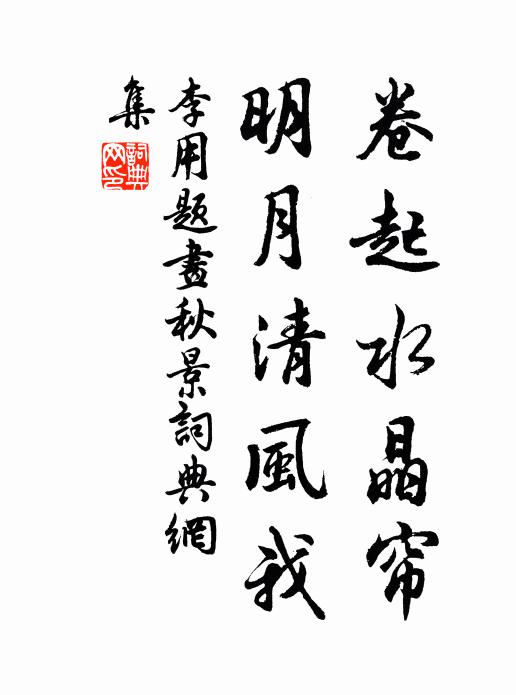 卷起水晶帘
明月清風我
李用題畫秋景詞典網
集
詞典網印